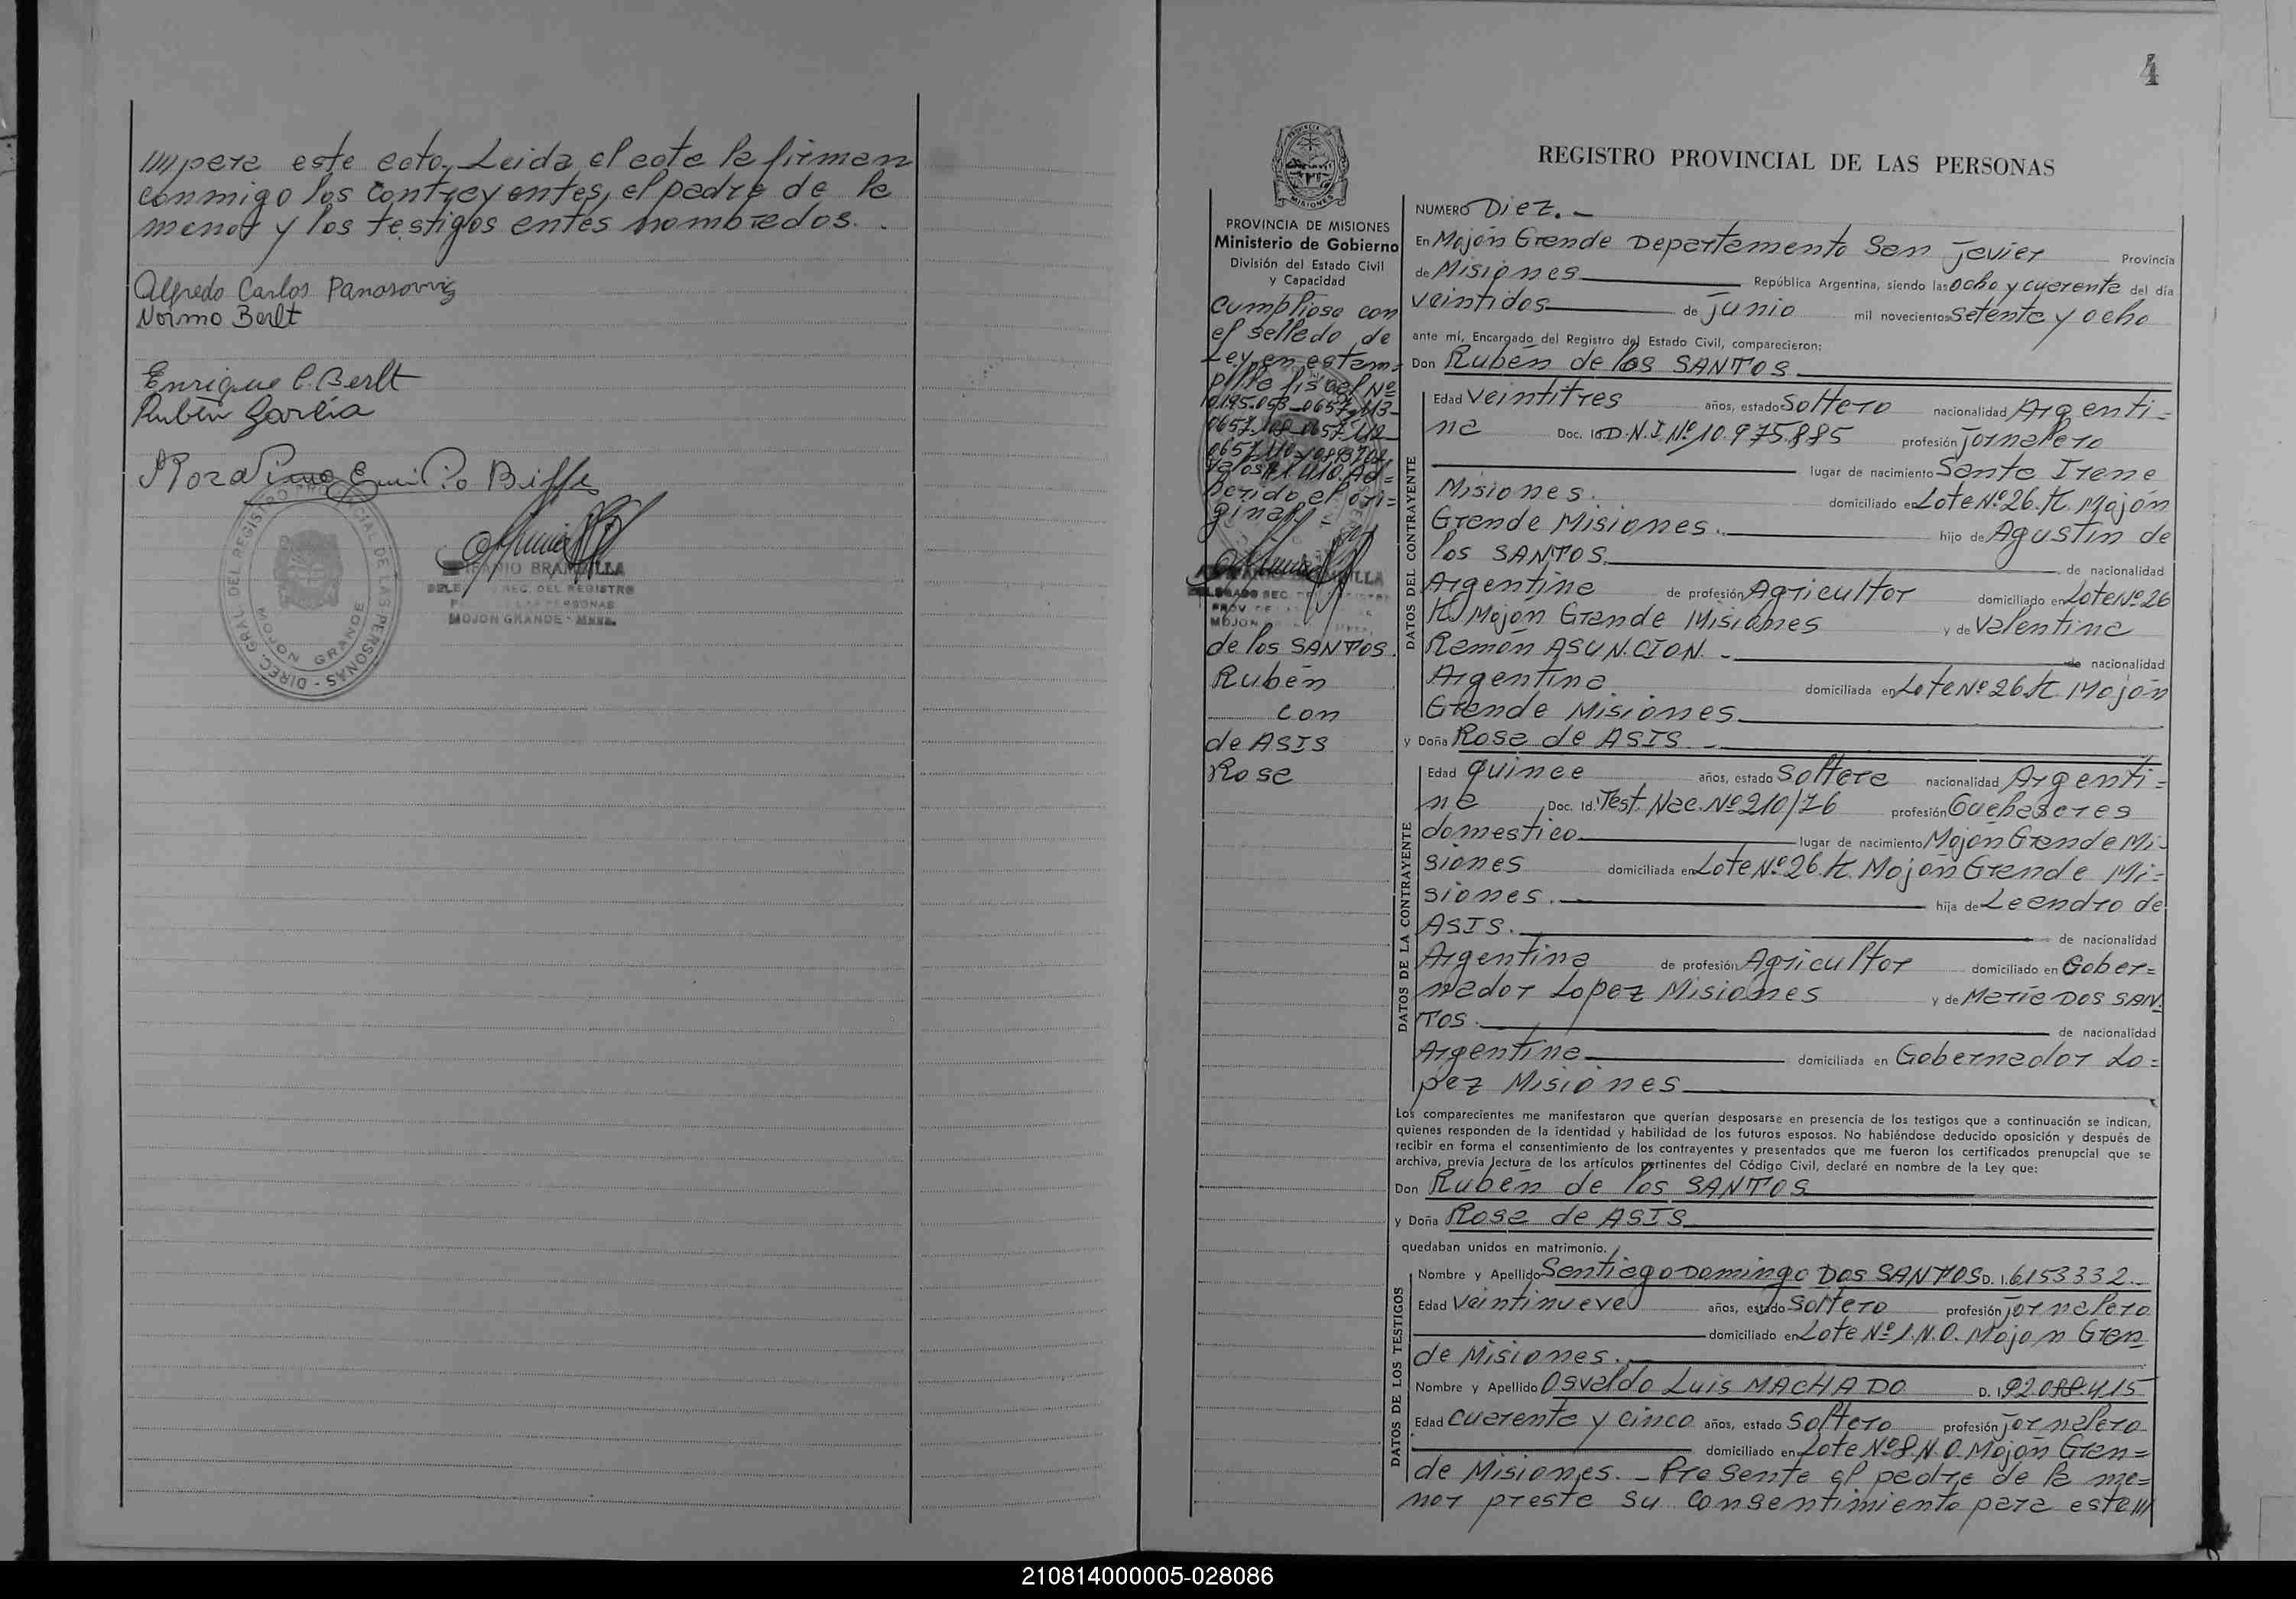 ///para este acto. Leida el acta la firman
conmigo los contrayentes, el padre de la
menor y los testigos antes nombrados.
Alfredo Carlos Panasowig
Normo Berlt
Enrique C. Berlt
Rubén García
Emilio
DIREC. GRAL. DEL REGISTRO PROVINCIAL DE LAS PERSONAS
MOJON GRANDE
REC. DEL REGISTRO
PERSONAS
MOJON GRANDE - Mnes.
4
PROVINCIA DE MISIONES
Ministerio de Gobierno
División del Estado Civil
y Capacidad
Cumpliose con
el sellado de
Ley en estam=
pilla fiscal Nº
ginal.
MOJON
de los SANTOS
Rubén
con
de ASIS
Rosa
REGISTRO PROVINCIAL DE LAS PERSONAS
NUMERO Diez.-
En Mojón Grande Departamento San Javier Provincia
de Misiones República Argentina, siendo las Ocho y cuarenta del día
veintidos de junio mil novecientos setenta y ocho
ante mí, Encargado del Registro del Estado Civil, comparecieron:
Don Rubén de los SANTOS.
DATOS DEL CONTRAYENTE
Edad veintitres años, estado soltero nacionalidad Argenti=
na Doc. Id. D.N.I. Nº 10.975.885 profesión jornalero
lugar de nacimiento Santa Irene
Misiones. domiciliado en Lote Nº 26.K. Mojón
Grande Misiones. hijo de Agustin de
los SANTOS. de nacionalidad
Argentina de profesión Agricultor domiciliado en Lote Nº 26
K. Mojón Grande Misiones y de Valentina
Ramón ASUNCION.- de nacionalidad
Argentina. domiciliada en Lote Nº 26 K. Mojón
Grande Misiones.
y Doña Rosa de ASIS.-
DATOS DE LA CONTRAYENTE
Edad quince años, estado Soltera nacionalidad Argenti=
na Doc. Id. Test. Nac. Nº 210/76 profesión Quehaseres
domestico lugar de nacimiento Mojón Grande Mi=
siones domiciliada en Lote Nº 26.K. Mojón Grande Mi=
siones. hija de Leandro de
ASIS. de nacionalidad
Argentina de profesión Agricultor domiciliado en Gober=
nador Lopez Misiones y de María DOS SAN=
TOS. de nacionalidad
Argentina domiciliada en Gobernador Lo=
pez Misiones
Los comparecientes me manifestaron que querían desposarse en presencia de los testigos que a continuación se indican,
quienes responden de la identidad y habilidad de los futuros esposos. No habiéndose deducido oposición y después de
recibir en forma el consentimiento de los contrayentes y presentados que me fueron los certificados prenupcial que se
archiva, previa lectura de los artículos pertinentes del Código Civil, declaré en nombre de la Ley que:
Don Rubén de los SANTOS
y Doña Rosa de ASIS
quedaban unidos en matrimonio.
DATOS DE LOS TESTIGOS
Nombre y Apellido Santiago Domingo DOS SANTOS D. I. 6153332.-
Edad veintinueve años, estado soltero profesión jornalero
domiciliado en Lote Nº 1.N.O. Mojón Gran
de Misiones.
Nombre y Apellido Osvaldo Luis MACHADO D. I. 92.088.415
Edad cuarenta y cinco años, estado soltero profesión jornalero
domiciliado en Lote Nº 8.N.O. Mojón Gran=
de Misiones.- Presente el padre de la me=
nor presta su consentimiento para este///
210814000005-028086